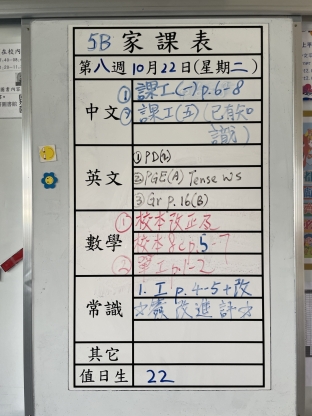 5B 家課表
第八週10月22日(星期二)
中文
①課工(一)p.6-8
②課工(五)(已有知
識)
英文
①PD(2)
②PGE(A) Tense WS
③Gr p.16(B)
數學
①校本改正及
校本 p.5-7
②單工p.1-2
常識
1. 工 p.4-5+改
其它
值日生 22